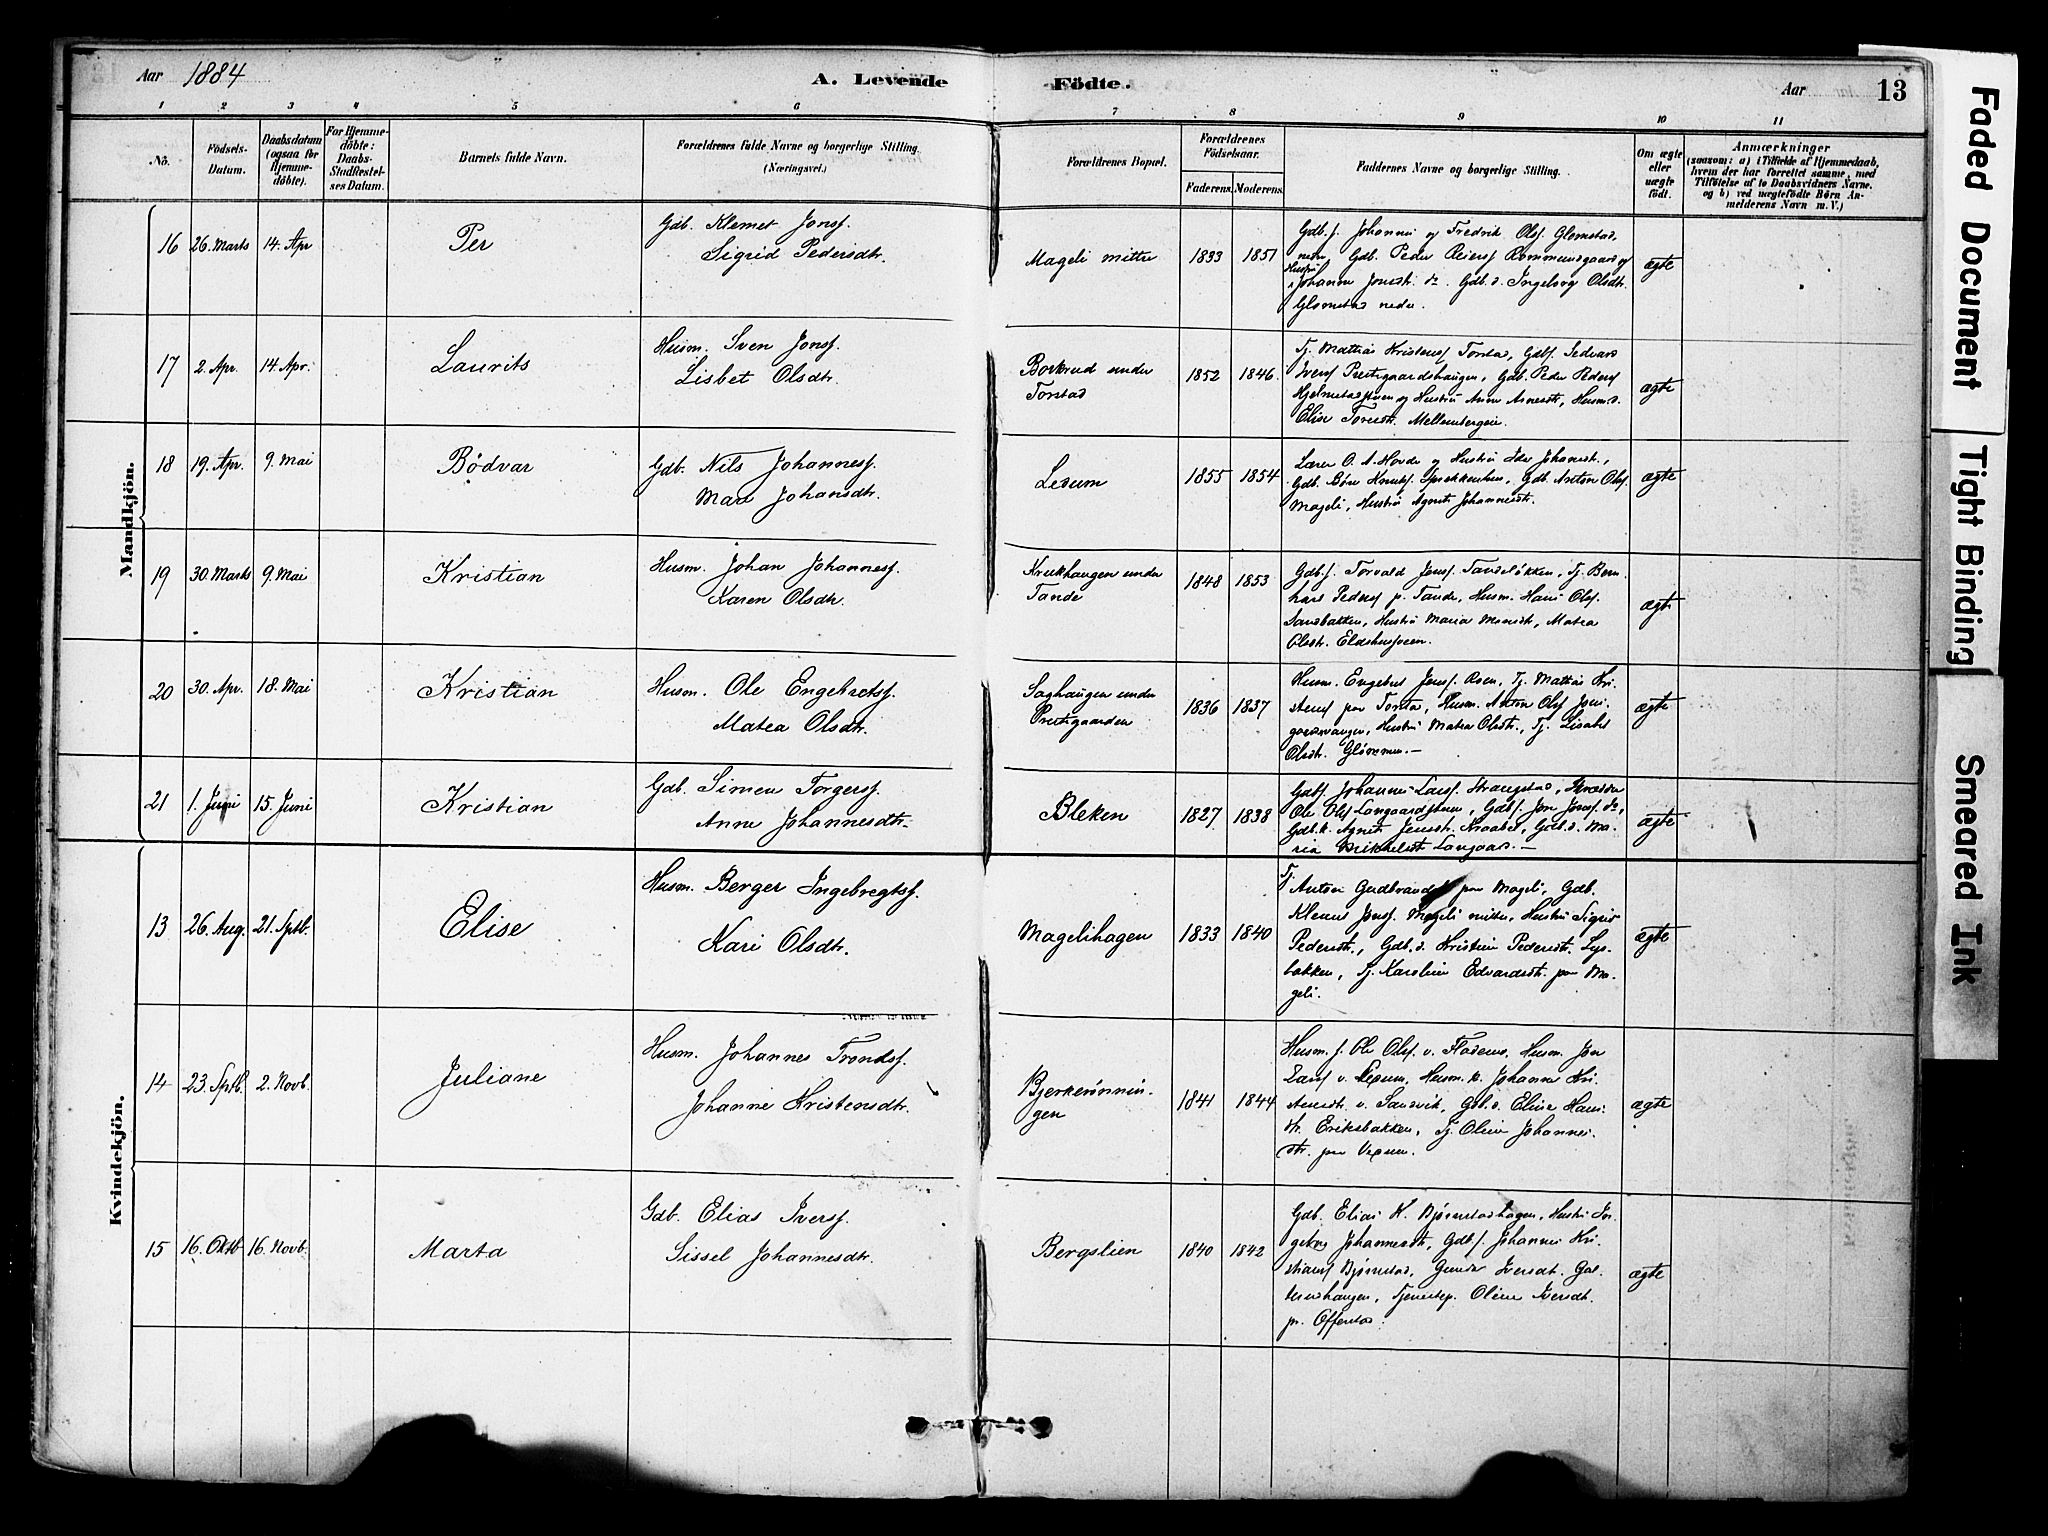 Aar 1884
A. Levende Födte.
Aar
13
1 2 3 4 5 6 7 8 9 10 11
No.
Födsels-
Datum.
Daabsdatum
(ogsaa for
Hjemme-
döbte).
For Hjemme-
döbte:
Daabs-
Stadfæstel-
ses Datum.
Barnets fulde Navn.
Forældrenes fulde Navne og borgerlige Stilling.
(Næringsvei.)
Forældrenes Bopæl.
Forældrenes
Födselsaar.
Faderens. Moderens.
Faddernes Navne og borgerlige Stilling.
Om ægte
eller
uægte
födt.
Anmærkninger
(saasom: a) i Tilfælde af Hjemmedaab,
hvem der har forrettet samme, med
Tilföielse af to Daabsvidners Navne.
og b) ved uægtefödte Börn An-
melderens Navn m. V.)
Mandkjön.
16 26. Marts 14. Apr Per
Gdb. Klemet Jonsf.
Sigrid Pedersdtr.
Mageli mittre 1833 1851
Gdb.s. Johannes og Fredrik Olsf. Glomstad
nedre, Gdb. Peder Reiersf Rommundgaard og
Hustru
Johanne Jonsdtr. do. Gdb.d. Ingeborg Olsdtr.
Glomstad nedre.
ægte
17 2. Apr. 14. Apr. Laurits
Husm. Sven Jonsf.
Lisbet Olsdtr.
under
Torstad
1852 1846
Tj. Mathias Kristensf Torstad, Gdbs. Edvard
Iversf Prestgaardshaugen, Gdb. Peder Pedersf
og Hustru Anne Arnesdtr, Husm.d.
Elise Mellembergeie.
ægte
18 19. Apr. 9. Mai Bødvar
Gdb. Nils Johannesf.
Mari Johansdtr.
Lesum 1855 1854
Lærer O. A. Hovde og Hustru Johansdt.,
Gdb. Gdb. Anton Olsf.
Mageli, Hustru Agnete Johannesdt.
ægte
19 30. Marts 9. Mai Kristian
Husm. Johan Johannesf.
Karen Olsdtr.
Krukhaugen under
Tande
1848 1853
Gdb.s. Torvald Jonsf. Tandeløkken, Tj. Bern-
hard Pedersf p. Tande, Husm. Hans Olsf.
Sandbakken, Hustru Maria Monsdt, Matea
Olsdtr.
ægte
20 30. Apr. 18. Mai Kristian
Husm. Ole Engebretsf.
Matea Olsdtr.
Saghaugen under
Prestgaarden
1836 1837
Husm. Engebret Jensf. Tj. Mathias Kri-
stensf paa Torstad, Husm. Anton Olsf
Hustru Matea Olsdtr., Tj. Lisabet
Olsdtr. Glømmen.—
ægte
21 1. Juni 15. Juni Kristian
Gdb. Simen Torgersf.
Anne Johannesdtr.
Bleken 1827 1838
Gdbs. Johannes Larsf. Strangstad,
Ole Olsf Langaardstuen, Gdbs. Jon Jonsf do,
Gdb.k. Agnete Jensdt. Kraabøl, Gdb.d. Ma-
ria Langaard.—
ægte
Kvindekjön.
13 26. Aug. 21. Sptb. Elise
Husm. Berger Ingebregtsf.
Kari Olsdtr.
Magelihagen 1833 1840
Tj.
Anton Gudbrandsf paa Mageli, Gdb.
Klemet Jonsf. Mageli mittre, Hustru Sigrid
Pedersdt., Gdb.d. Kristine Pedersdt. Lys-
bakken, Tj. Karoline Edvardsdt. paa Ma-
geli.
ægte
14 23. Sptb. 2. Novb. Juliane
Husm. Johannes Trondsf.
Johanne Kristensdtr.
Bjerkerønnin-
gen
1841 1844
Husm.s. Ole Olsf. v. Husm. Jon
Larsf v. Vexum, Husm.k. Johanne Kri-
stensdt. v. Sandvik, Gdb.d. Eline Hans-
dt. Eriksbakken, Tj. Oline Johannes-
dtr. paa Vexum.
ægte
15 16. Oktb. 16. Novb. Marta
Gdb. Elias Iversf.
Sissel Johannesdtr.
Bergslien 1840 1842
Gdb. Elias K. Bjørnstadhagen, Hustru In-
geborg Johannesdt, Gdbs. Johannes Kri-
stiansf Bjørnstad, Iversdt.
Tjenestep. Oline Iversdt.
p. Offenstad.
ægte
Faded Document
Tight Binding
Smeared Ink